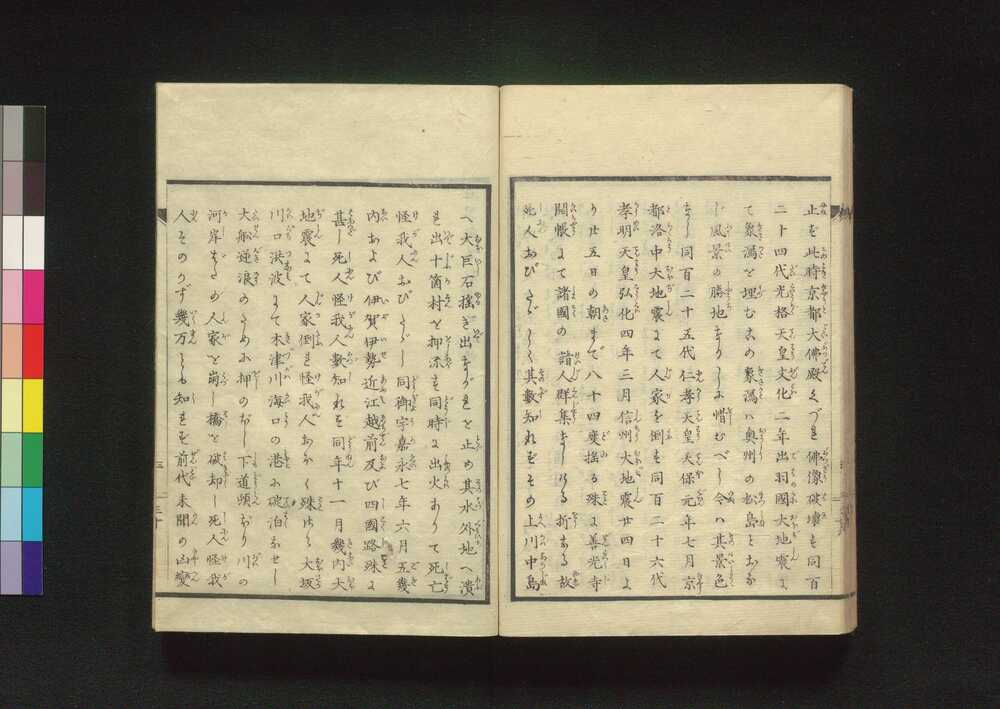 止を此時京都大佛殿くづれ佛像破壊も同百
二十四代光格天皇文化二年出羽國大地震に
て象潟を埋むこの象潟ハ奥州の松島とおな
じ風景の勝地なりしに惜むべし今ハ其景色
なし同百二十五代仁孝天皇天保元年七月京
都洛中大地震にて人家を倒も同百二十六代
孝明天皇弘化四年三月信州大地震廿四日よ
り廿五日の朝まで八十四度搖る殊に善光寺
開帳にて諸國の諸人群集なしける折なる故
死人おびたゞしく其數知れをその上川中島
へ大巨石搖ぎ出ながれを止め其水外地へ潰
れ出十箇村を押流も同時に出火ありて死亡
怪我人おびたゞし同御宇嘉永七年六月五幾
内および伊賀伊勢近江越前及び四國路殊に
甚し死人怪我人數知れを同年十一月幾内大
地震にて人家倒れ怪我人おほく殊に大坂
川口洪波にて木津川海口の港に破泊なせし
大船逆浪のために押のぼし下道頓ぼり川の
河岸の人家を崩し橋を破却し死人怪我
人そのかず幾万とも知れを前代未聞の凶變
三十